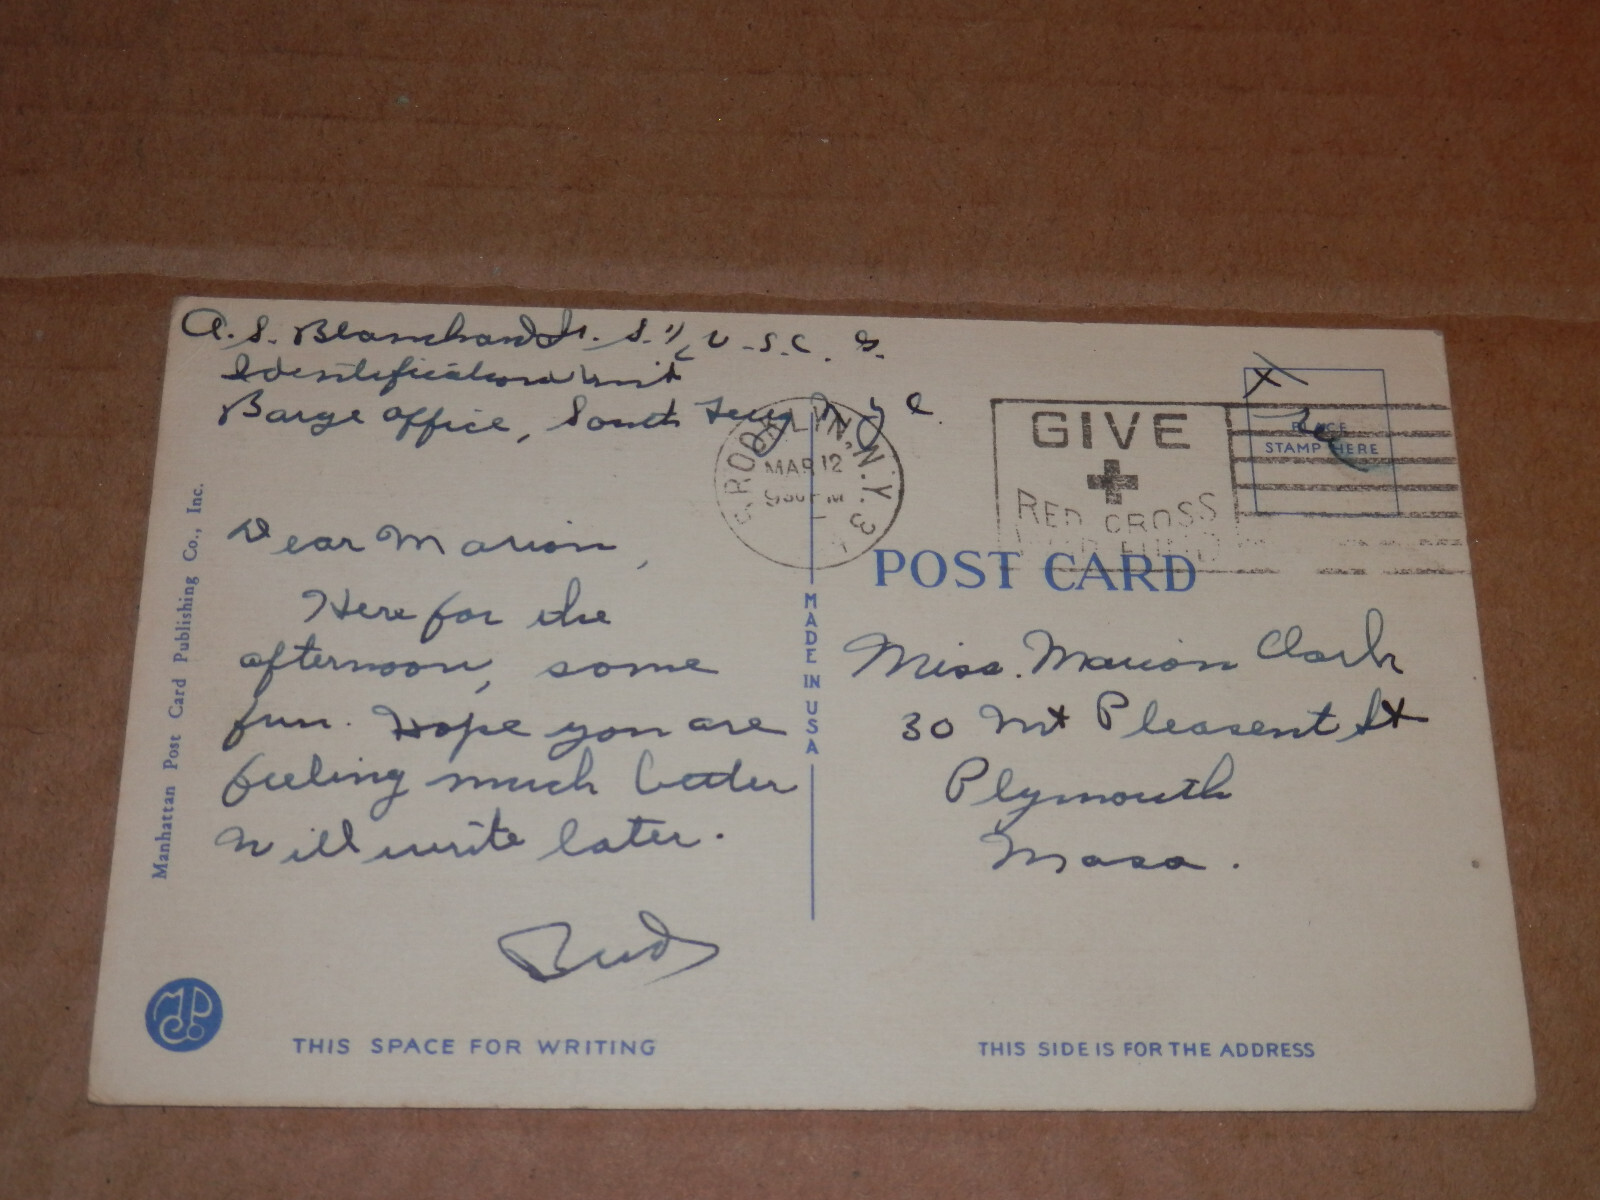 A. S. Blanchard Jr. S. 1/c U.S.C.G.
Identification Unit
Barge Office, South Ferry N Y C
BROOKLYN, N.Y. 3
MAR 12
930 PM
GIVE
RED CROSS
PLACE
STAMP HERE
POST CARD
Manhattan Post Card Publishing Co., Inc.
Dear Marion,
Here for the
afternoon, some
fun. Hope you are
feeling much better
Will write later.
Bud
MADE IN USA
Miss. Marion Clark
30 Mt Pleasent St
Plymouth
Mass.
THIS SPACE FOR WRITING
THIS SIDE IS FOR THE ADDRESS